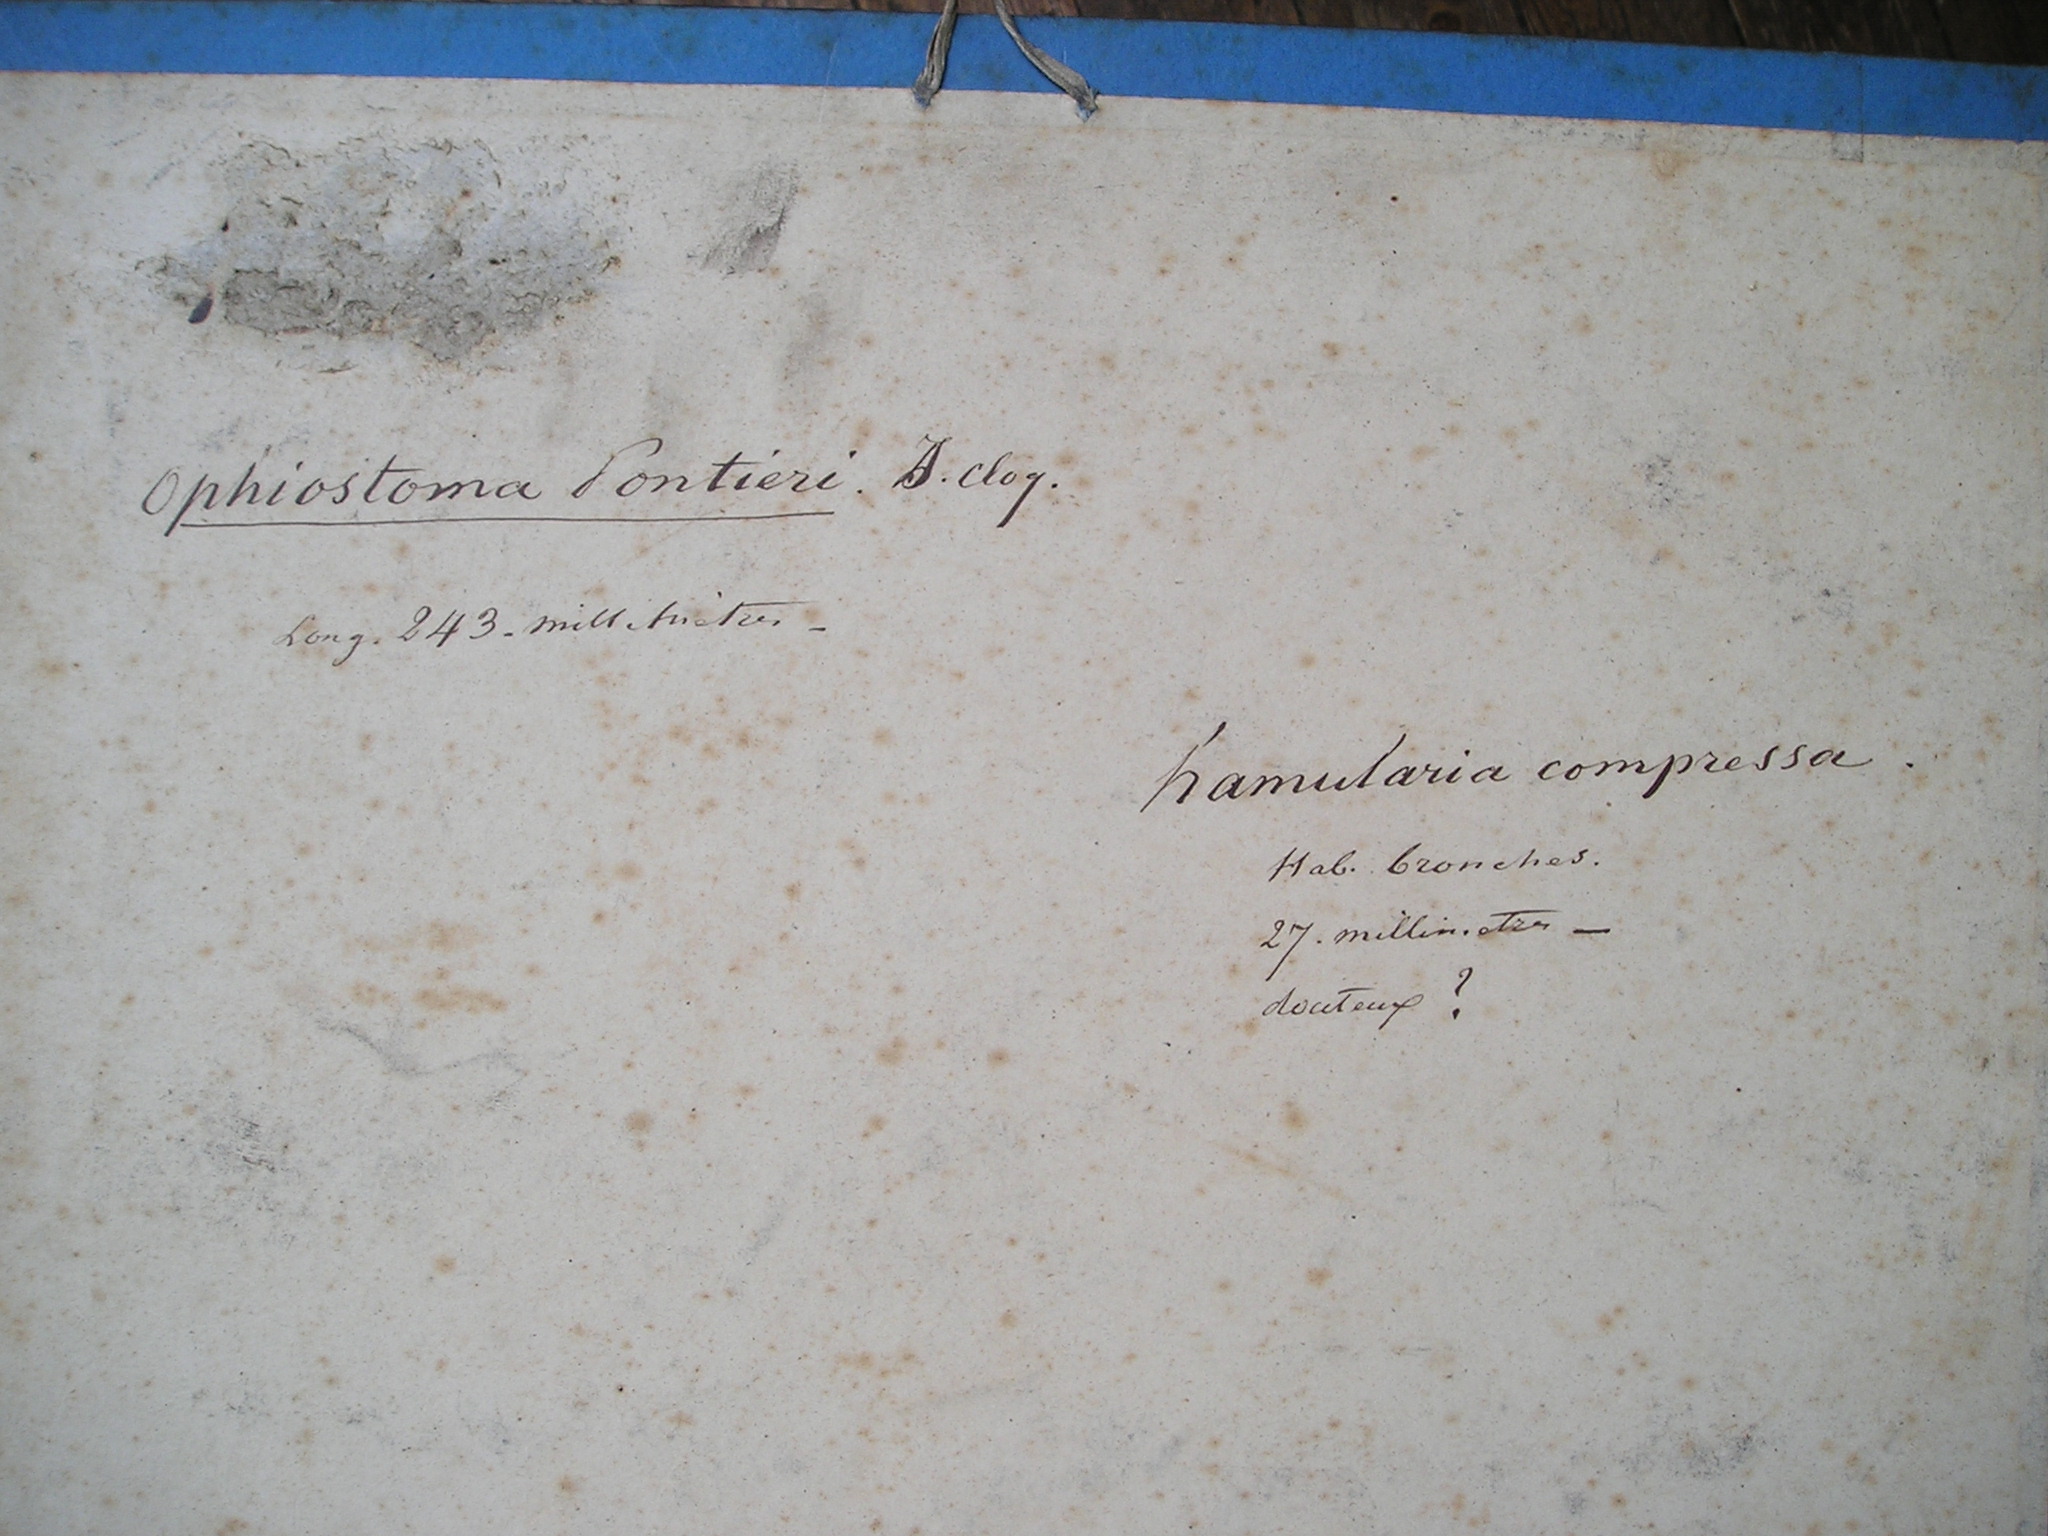 Ophiostoma Pontieri. J. Cloq.
Long. 243 - millimètres -
hamularia compressa.
Hab. bronches.
27. millimètres -
douteux ?